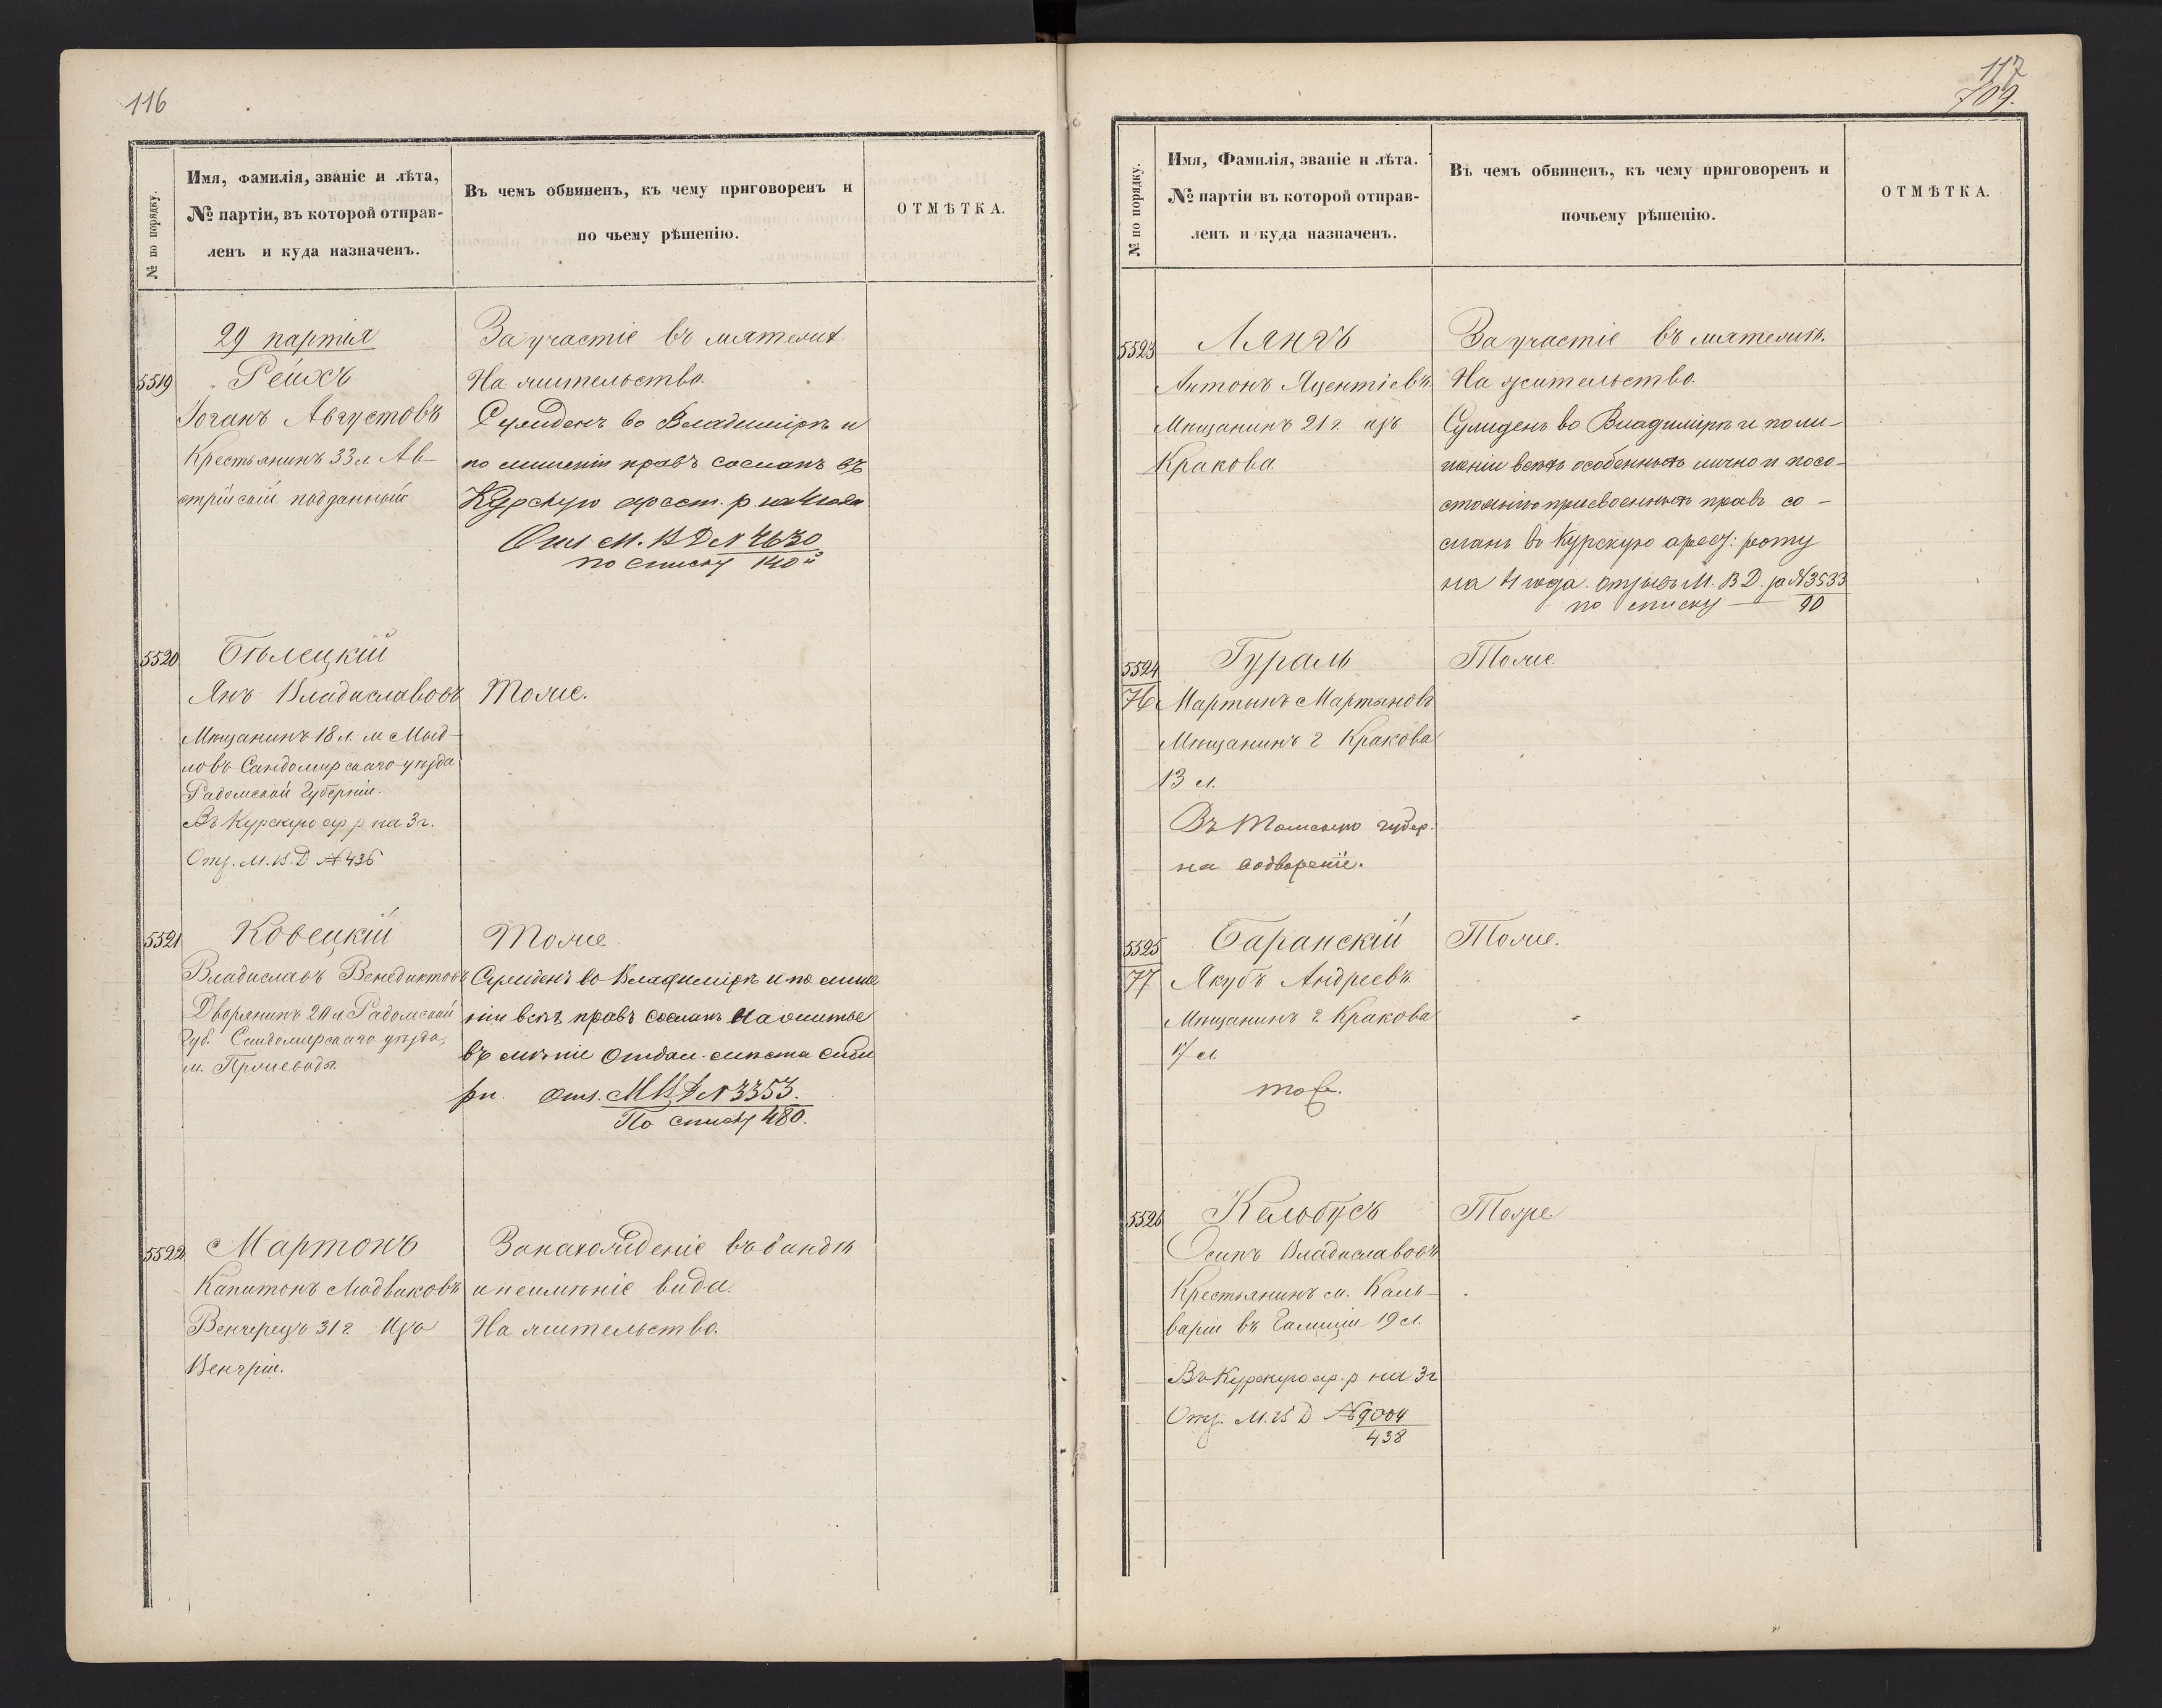 116
№ по порядку.
Имя, фамилія, званіе и лѣта,
№ партіи, въ которой отправ-
ленъ и куда назначенъ.
Въ чемъ обвиненъ, къ чему приговоренъ и
по чьему рѣшенію.
ОТМѢТКА.
29 партія
5519 Рейхъ
Іоганъ Августовъ
Крестьянинъ 33 л. Ав-
стрійскій подданный
За участіе въ мятежѣ
На жительство.
Сужденъ во Владимірѣ и
по лишеніи правъ сосланъ въ
Курскую арест. р на 4 года
Отз М. В Д № 4630
по списку 140й
5520 Бѣлецкій
Янъ Владиславовъ
Мѣщанинъ 18 л. м Мыд-
ловъ Сандомирскаго уѣзда
Радомской Губерніи.
Въ Курскую ар р на 3 г.
Отз. М. В. Д № 436
Тоже.
5521 Ковецкій
Владиславъ Венедиктовъ
Дворянинъ 20 л Радомской
Губ. Сандомирскаго уѣзда,
м.
Тоже
Сужденъ во Владимірѣ и по лише
ніи всѣхъ правъ сосланъ На житье
въ мѣніе Отдал. мѣста Сиби
ри. Отз. М В Д № 3353.
По списку 480.
5522 Мартонъ
Капитонъ Людвиковъ
Венгерецъ 31 г Изъ
Венгріи.
За нахожденіе въ бандѣ
и неимѣніе вида.
На жительство.
117
709.
№ по порядку.
Имя, Фамилія, званіе и лѣта.
№ партіи въ которой отправ-
ленъ и куда назначенъ.
Въ чемъ обвиненъ, къ чему приговоренъ и
почьему рѣшенію.
ОТМѢТКА.
5523 Лянгъ
Антонъ Яцентіевъ
Мѣщанинъ 21 г. изъ
Кракова
За участіе въ мятежѣ.
На жительство.
Сужденъ во Владимірѣ и по ли-
шеніи всѣхъ особенныхъ лично и по со-
стоянію присвоенныхъ правъ со-
сланъ въ Курскую арест: роту
на 4 года. Отзывъ М. В Д. за № 3533
по списку 90
5524
76
Гураль
Мартынъ Мартыновъ
Мѣщанинъ г Кракова
13 л.
Въ Томскую губер.
на водвореніе.
Тоже.
5525
77
Баранскій
Якубъ Андреевъ
Мѣщанинъ г. Кракова
17 л.
тоже.
Тоже.
5526 Кельбусъ
Осипъ Владиславовъ
Крестьянинъ м. Каль-
варіи въ Галиціи 19 л.
Въ Курскую ар. р на 3 г
Отз. М. В Д № 9004
438
Тоже